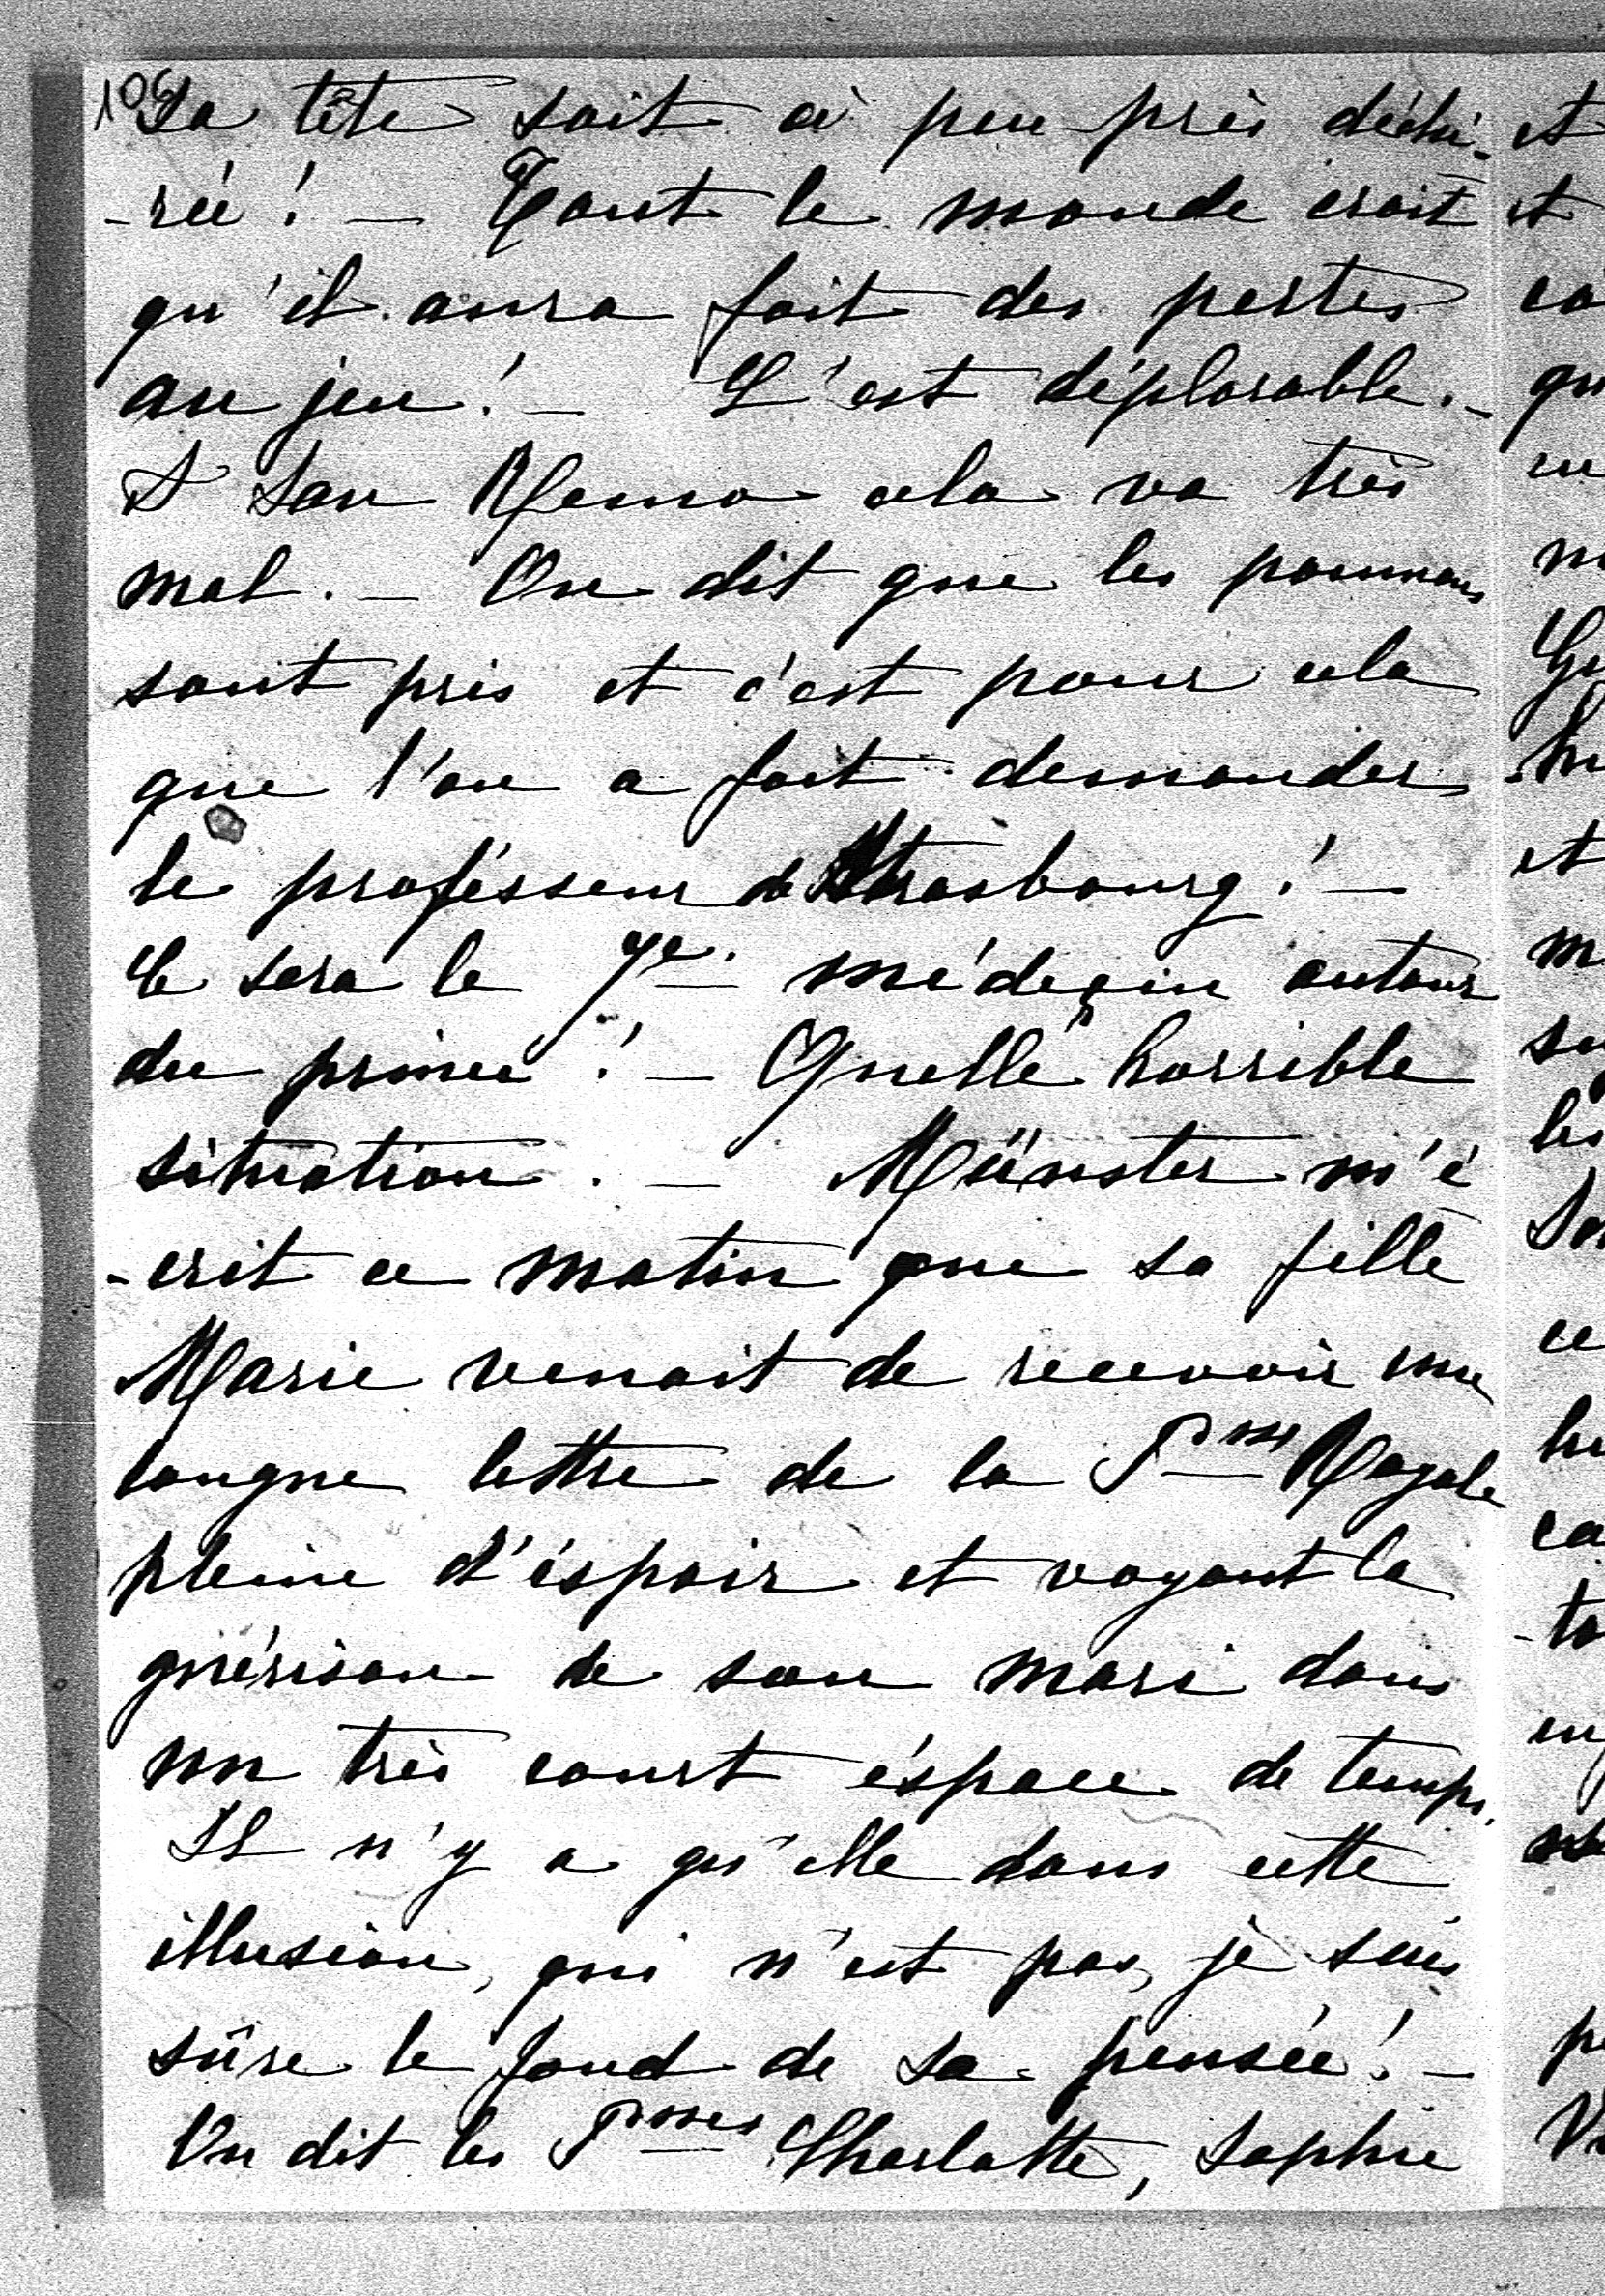 106
La tête soit à peu près déchi-
-rée! — Tout le monde croit
qu'il aura fait des pertes
au jeu! — C'est déplorable. —
A San Remo cela va très
mal. — On dit que les poumons
sont pris et c'est pour cela
que l'on a fait demander
le professeur de Strasbourg! —
Ce sera le 7e. médecin autour
du prince! — Quelle horrible
situation. — Münster m'é
-crit ce matin que sa fille
Marie venait de recevoir une
longue lettre de la Psse Royale
pleine d'éspoir et voyant la
guérison de son mari dans
un très court éspace de temps.
Il n'y a qu'elle dans cette
illusion, qui n'est pas, je suis
sûre le fond de sa pensée! —
On dit les Psses Charlotte, Sophie